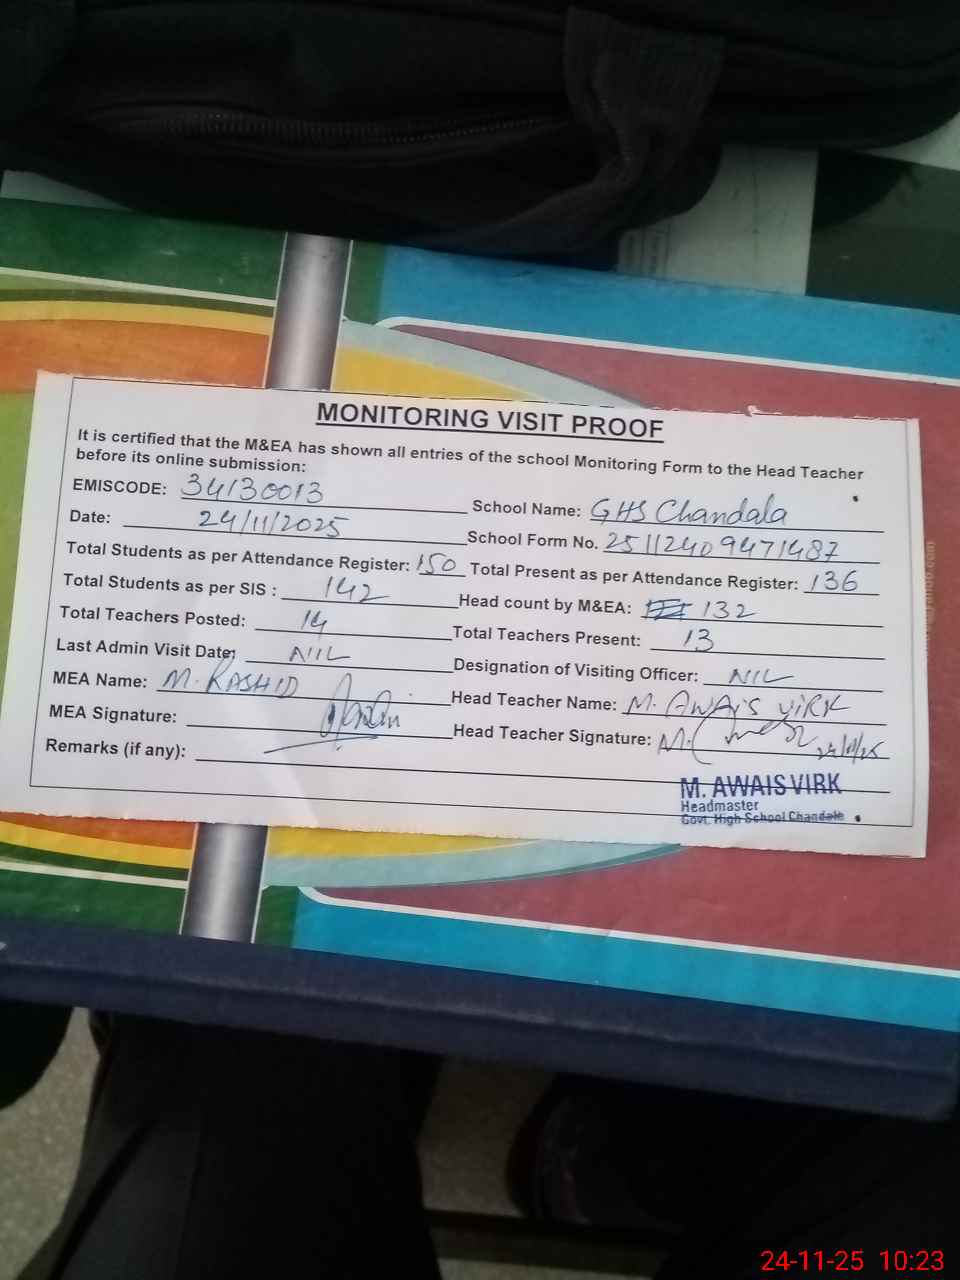 MONITORING VISIT PROOF
It is certified that the M&EA has shown all entries of the school Monitoring Form to the Head Teacher
before its online submission:
EMISCODE: 34130013 School Name: GHS Chandala
Date: 24/11/2025 School Form No. 25112409471487
Total Students as per Attendance Register: 150 Total Present as per Attendance Register: 136
Total Students as per SIS : 142 Head count by M&EA: 132
Total Teachers Posted: 14 Total Teachers Present: 13
Last Admin Visit Date: NIL Designation of Visiting Officer: NIL
MEA Name: M. RASHID Head Teacher Name: M. AWAIS VIRK
MEA Signature: Head Teacher Signature: 24/11/25
Remarks (if any):
M. AWAIS VIRK
Headmaster
Govt. High School Chandala
24-11-25 10:23